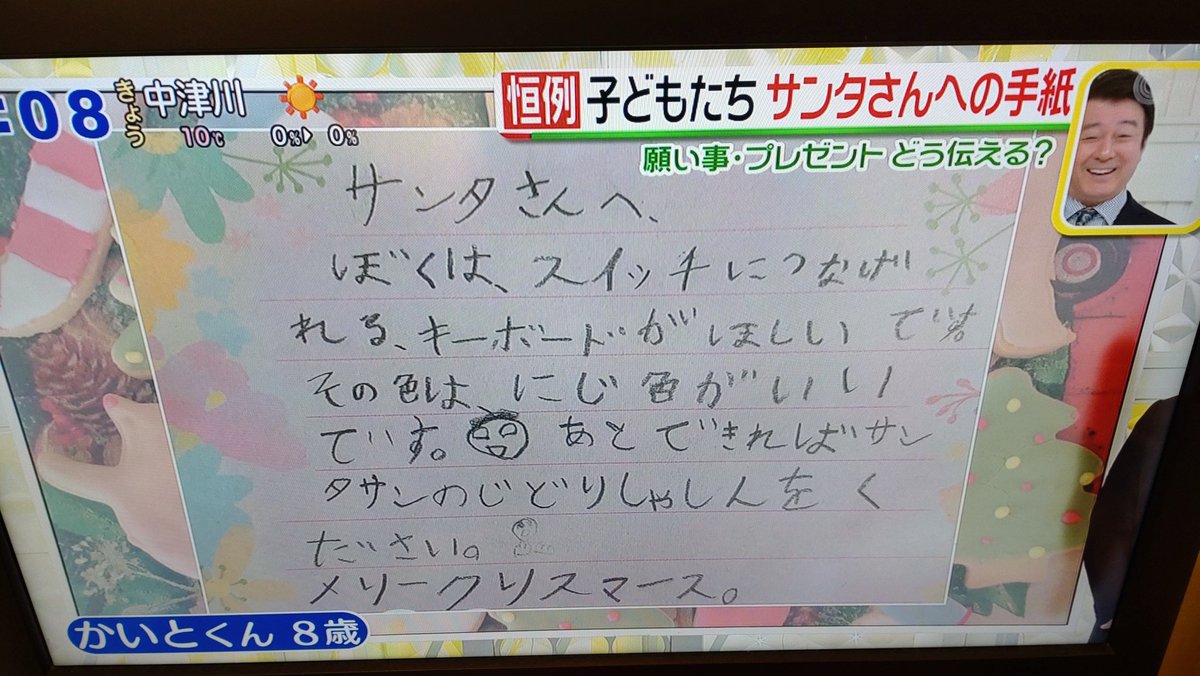 :08
きょう
中津川
10℃
0% 0%
恒例 子どもたち サンタさんへの手紙
願い事・プレゼント どう伝える?
サンタさんへ、
ぼくは、スイッチにつなげ
れる、キーボードがほしいです。
その色は、にじ色がいい
です。 あとできればサン
タサンのじどりしゃしんをく
ださい。
メリークリスマース。
かいとくん 8歳